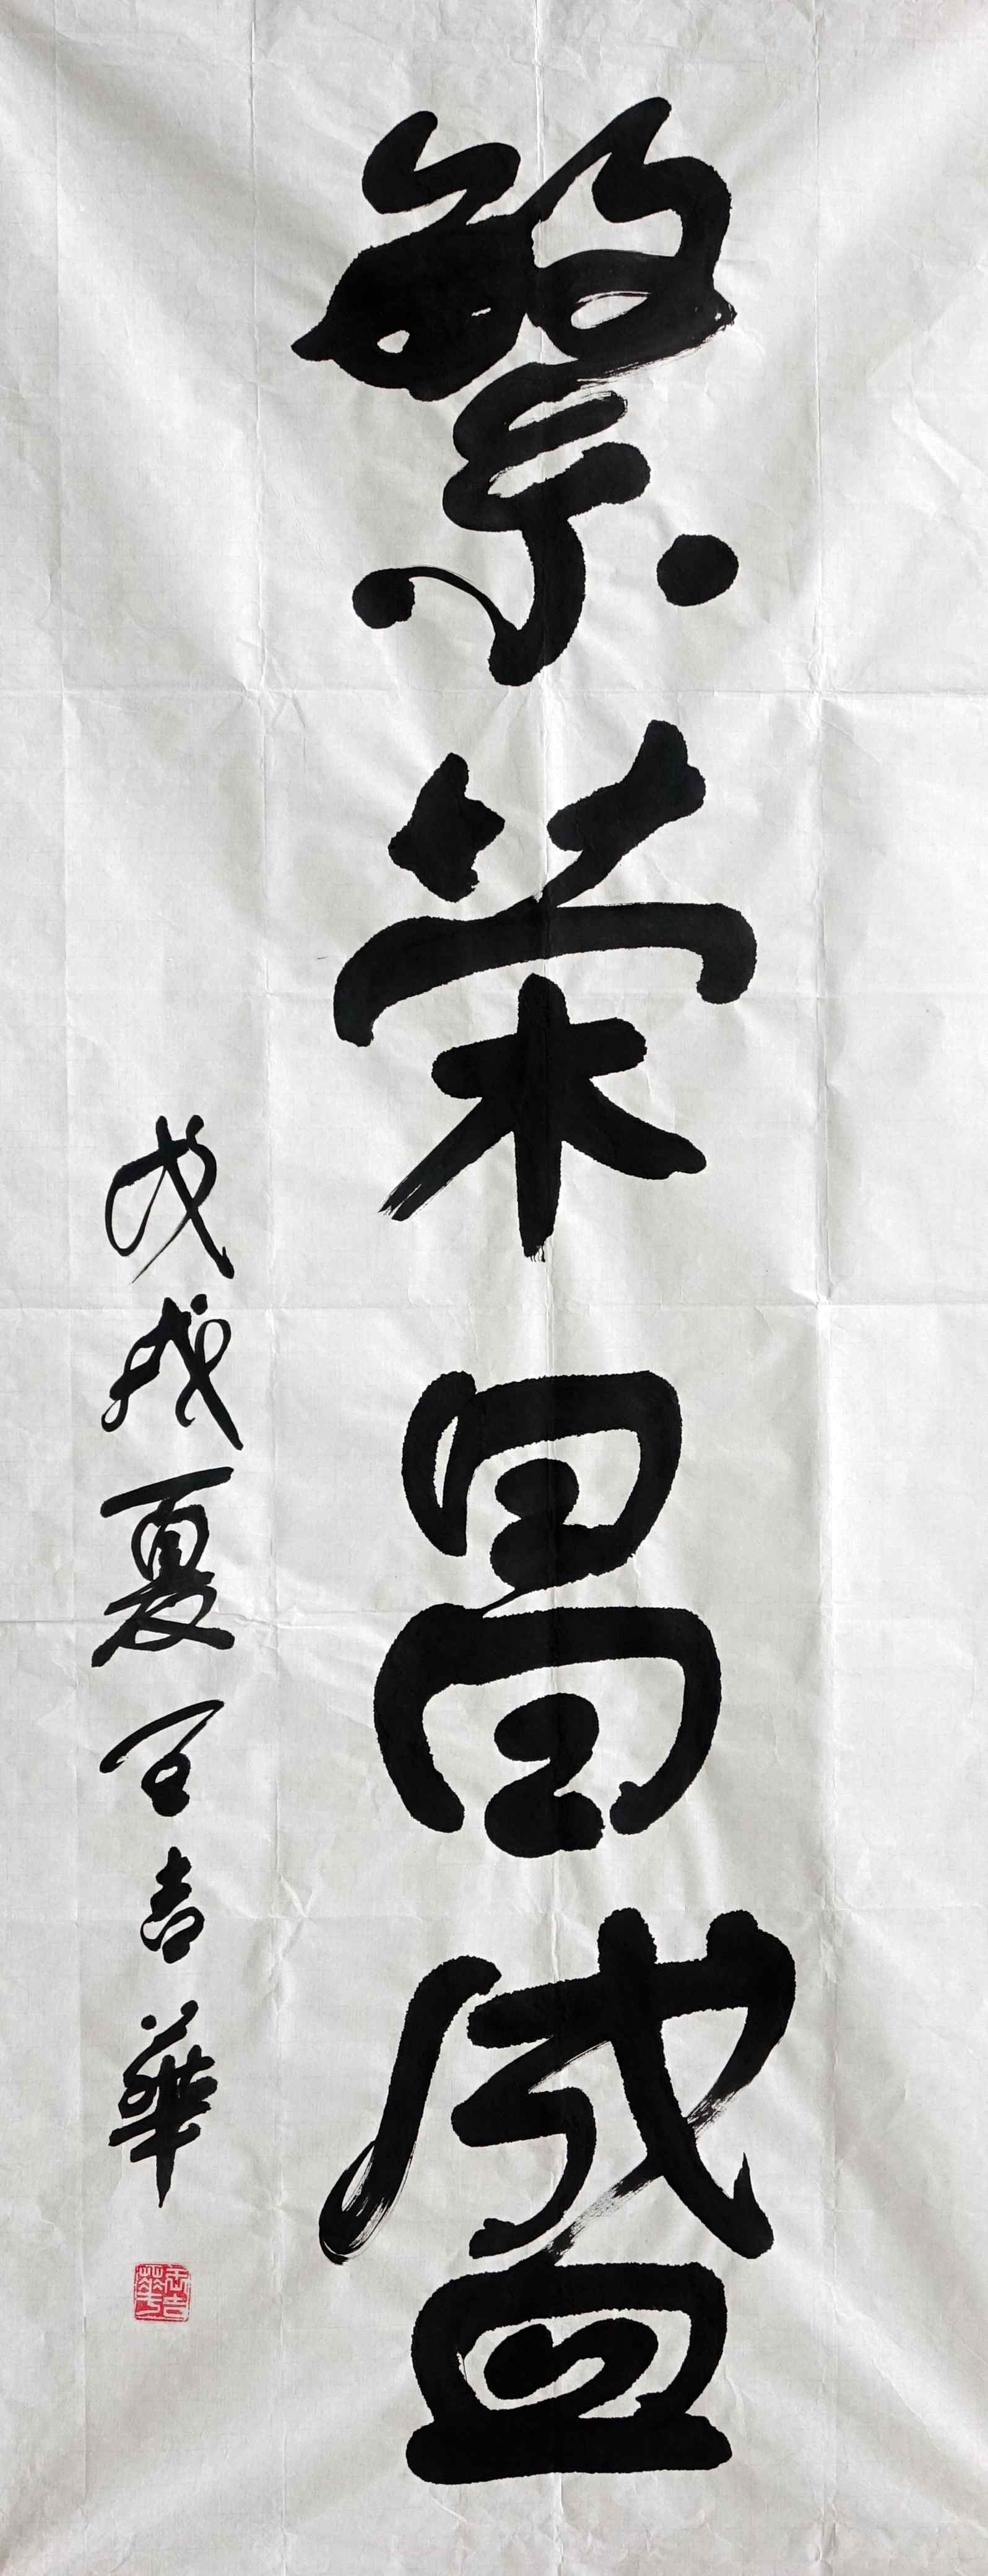 繁荣昌盛
戊戌夏 吉華